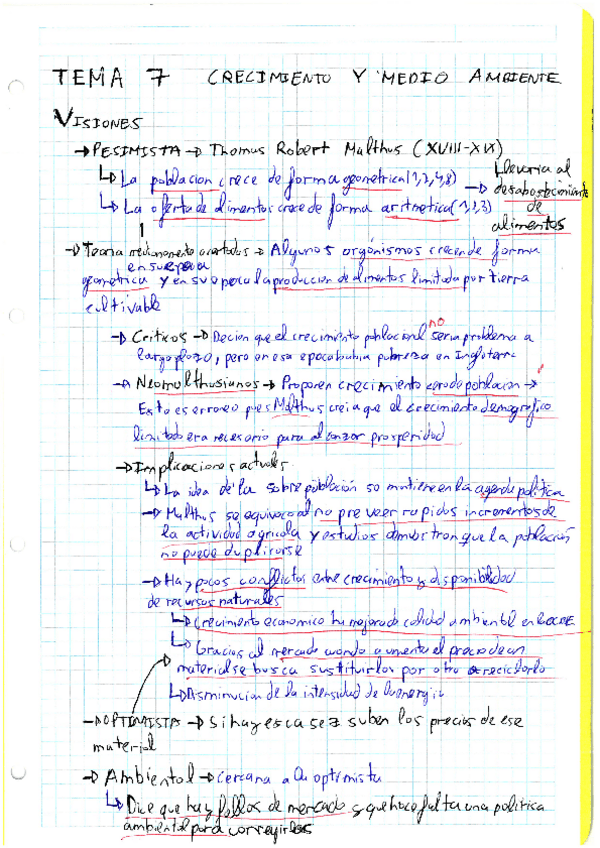 TEMA 7 CRECIMIENTO Y MEDIO AMBIENTE
VISIONES
→ PESIMISTA → Thomas Robert Malthus (XVIII-XIX)
↳ La poblacion crece de forma geometrica (1,2,4,8)
↳ La oferta de alimentos crece de forma aritmetica (1,2,3)
→ Llevaria al desabastecimiento de alimentos
→ Teoria medianamente acertada → Algunos organismos crecen de forma
geometrica y en su epoca la produccion de alimentos limitada por tierra
en su epoca
cultivable
→ Criticos → Decian que el crecimiento poblacional no seria problema a
largo plazo, pero en esa epoca habia pobreza en Inglaterra
→ Neomalthusianos → Proponen crecimiento cero de poblacion →
Esto es erroneo pues Malthus creia que el crecimiento demografico
limitado era necesario para alcanzar prosperidad
→ Implicaciones actuales
↳ La idea de la sobrepoblación se mantiene en la agenda politica
→ Malthus se equivoco al no preveer rapidos incrementos de
la actividad agricola y estudios demuestran que la población
no puede duplicarse
→ Hay pocos conflictos entre crecimiento y disponibilidad
de recursos naturales
↳ Crecimiento economico ha mejorado calidad ambiental en OCDE
↳ Gracias al mercado cuando aumenta el precio de un
material se busca sustituirlos por otro o reciclarlo
↳ Disminucion de la intensidad de la energia
→ OPTIMISTA → Si hay escasez suben los precios de ese
material
→ Ambiental → Cercana a la optimista
↳ Dice que hay fallos de mercado y que hace falta una politica
ambiental para corregirlos